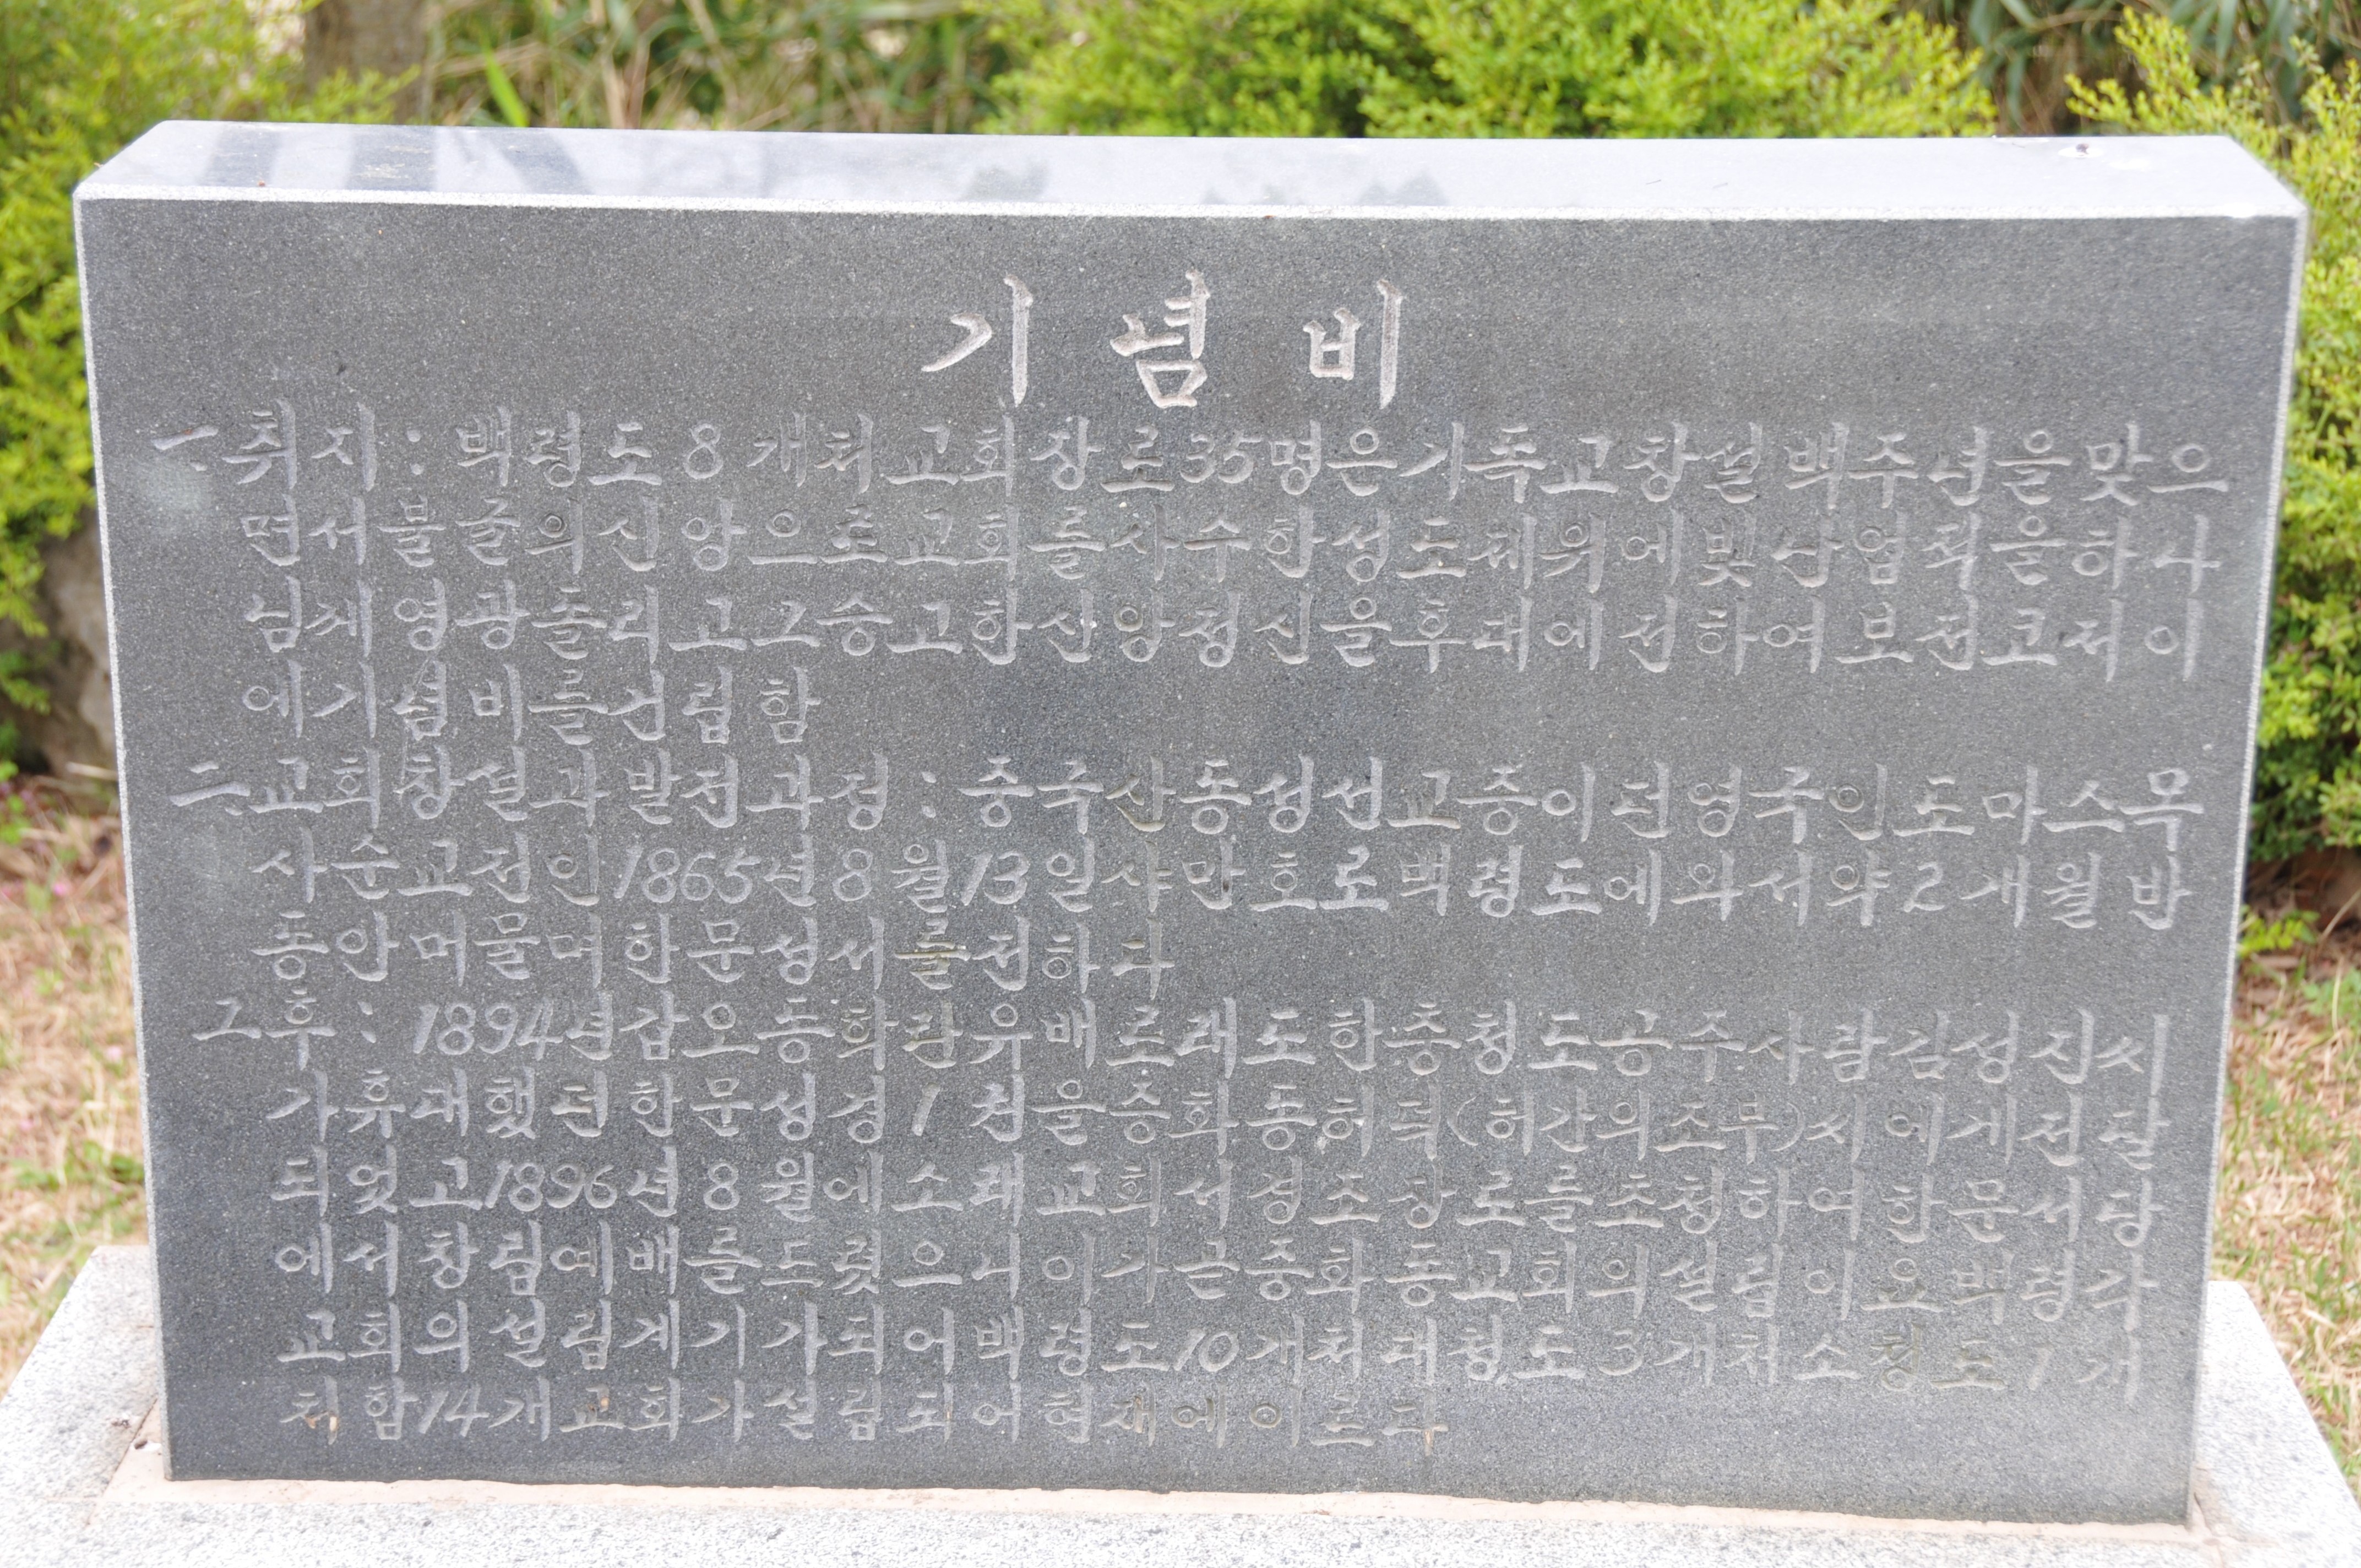 기념비
一. 취지 : 백령도 8개처교회장로 35명은기독교창설백주년을맞으
면서불굴의신앙으로교회를사수한성도제위에빛난업적을하나
님께영광돌리고그숭고한신앙정신을후대에전하여보전코저이
에기념비를건립함
二. 교회창설과발전과정 : 중국산동성선교중이던영국인도마스목
사순교전인1865년8월13일샤만호로백령도에와서약2개월반
동안머물며한문성서를전하다
그후 : 1894년갑오동학란유배로래도한충청도공주사람김성진씨
가휴대했던한문성경1권을중화동허득(허간의조부)씨에게전달
되었고1896년8월에소래교회서경조장로를초청하여한문서당
에서창립예배를드렸으니이가곧중화동교회의설립이요백령각
교회의설립계기가되어백령도10개처대청도3개처소청도1개
처합14개교회가설립되어현재에이르다